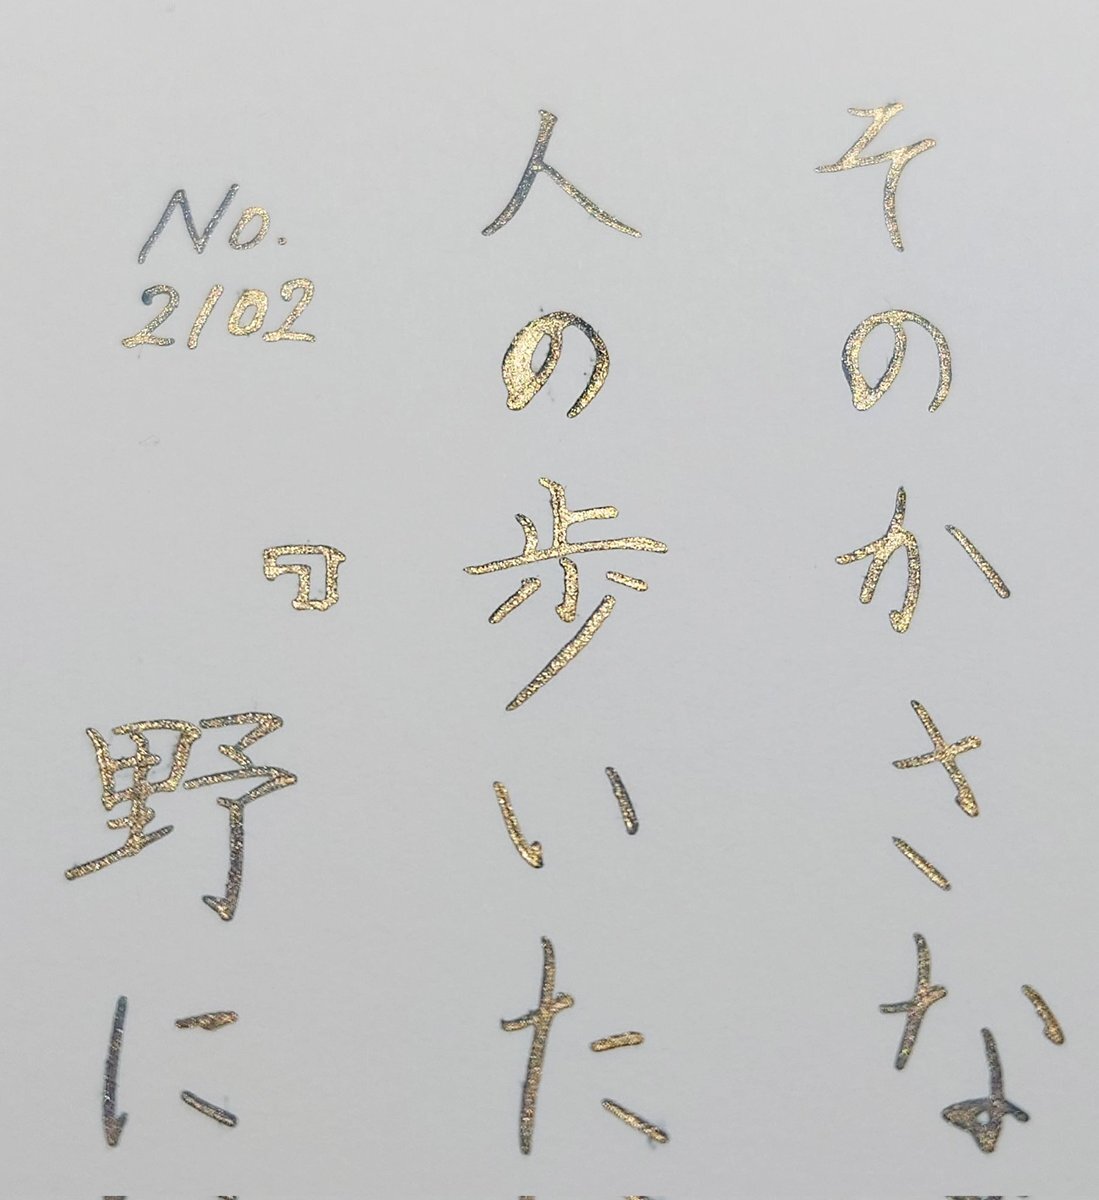 そのかさな
人の歩いた
『野に
No.
2102